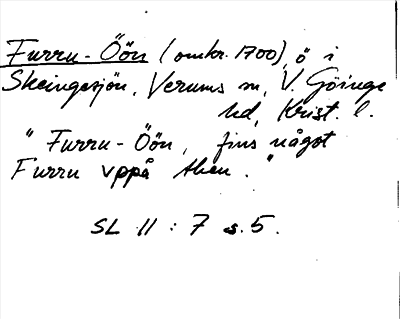 Furru-Öön (omkr. 1700), ö i
Skeingesjön, Verums sn, V. Göinge
hd, Krist. l.
"Furru-Öön, fins något
Furru vppå then."
SL II : 7 s. 5.